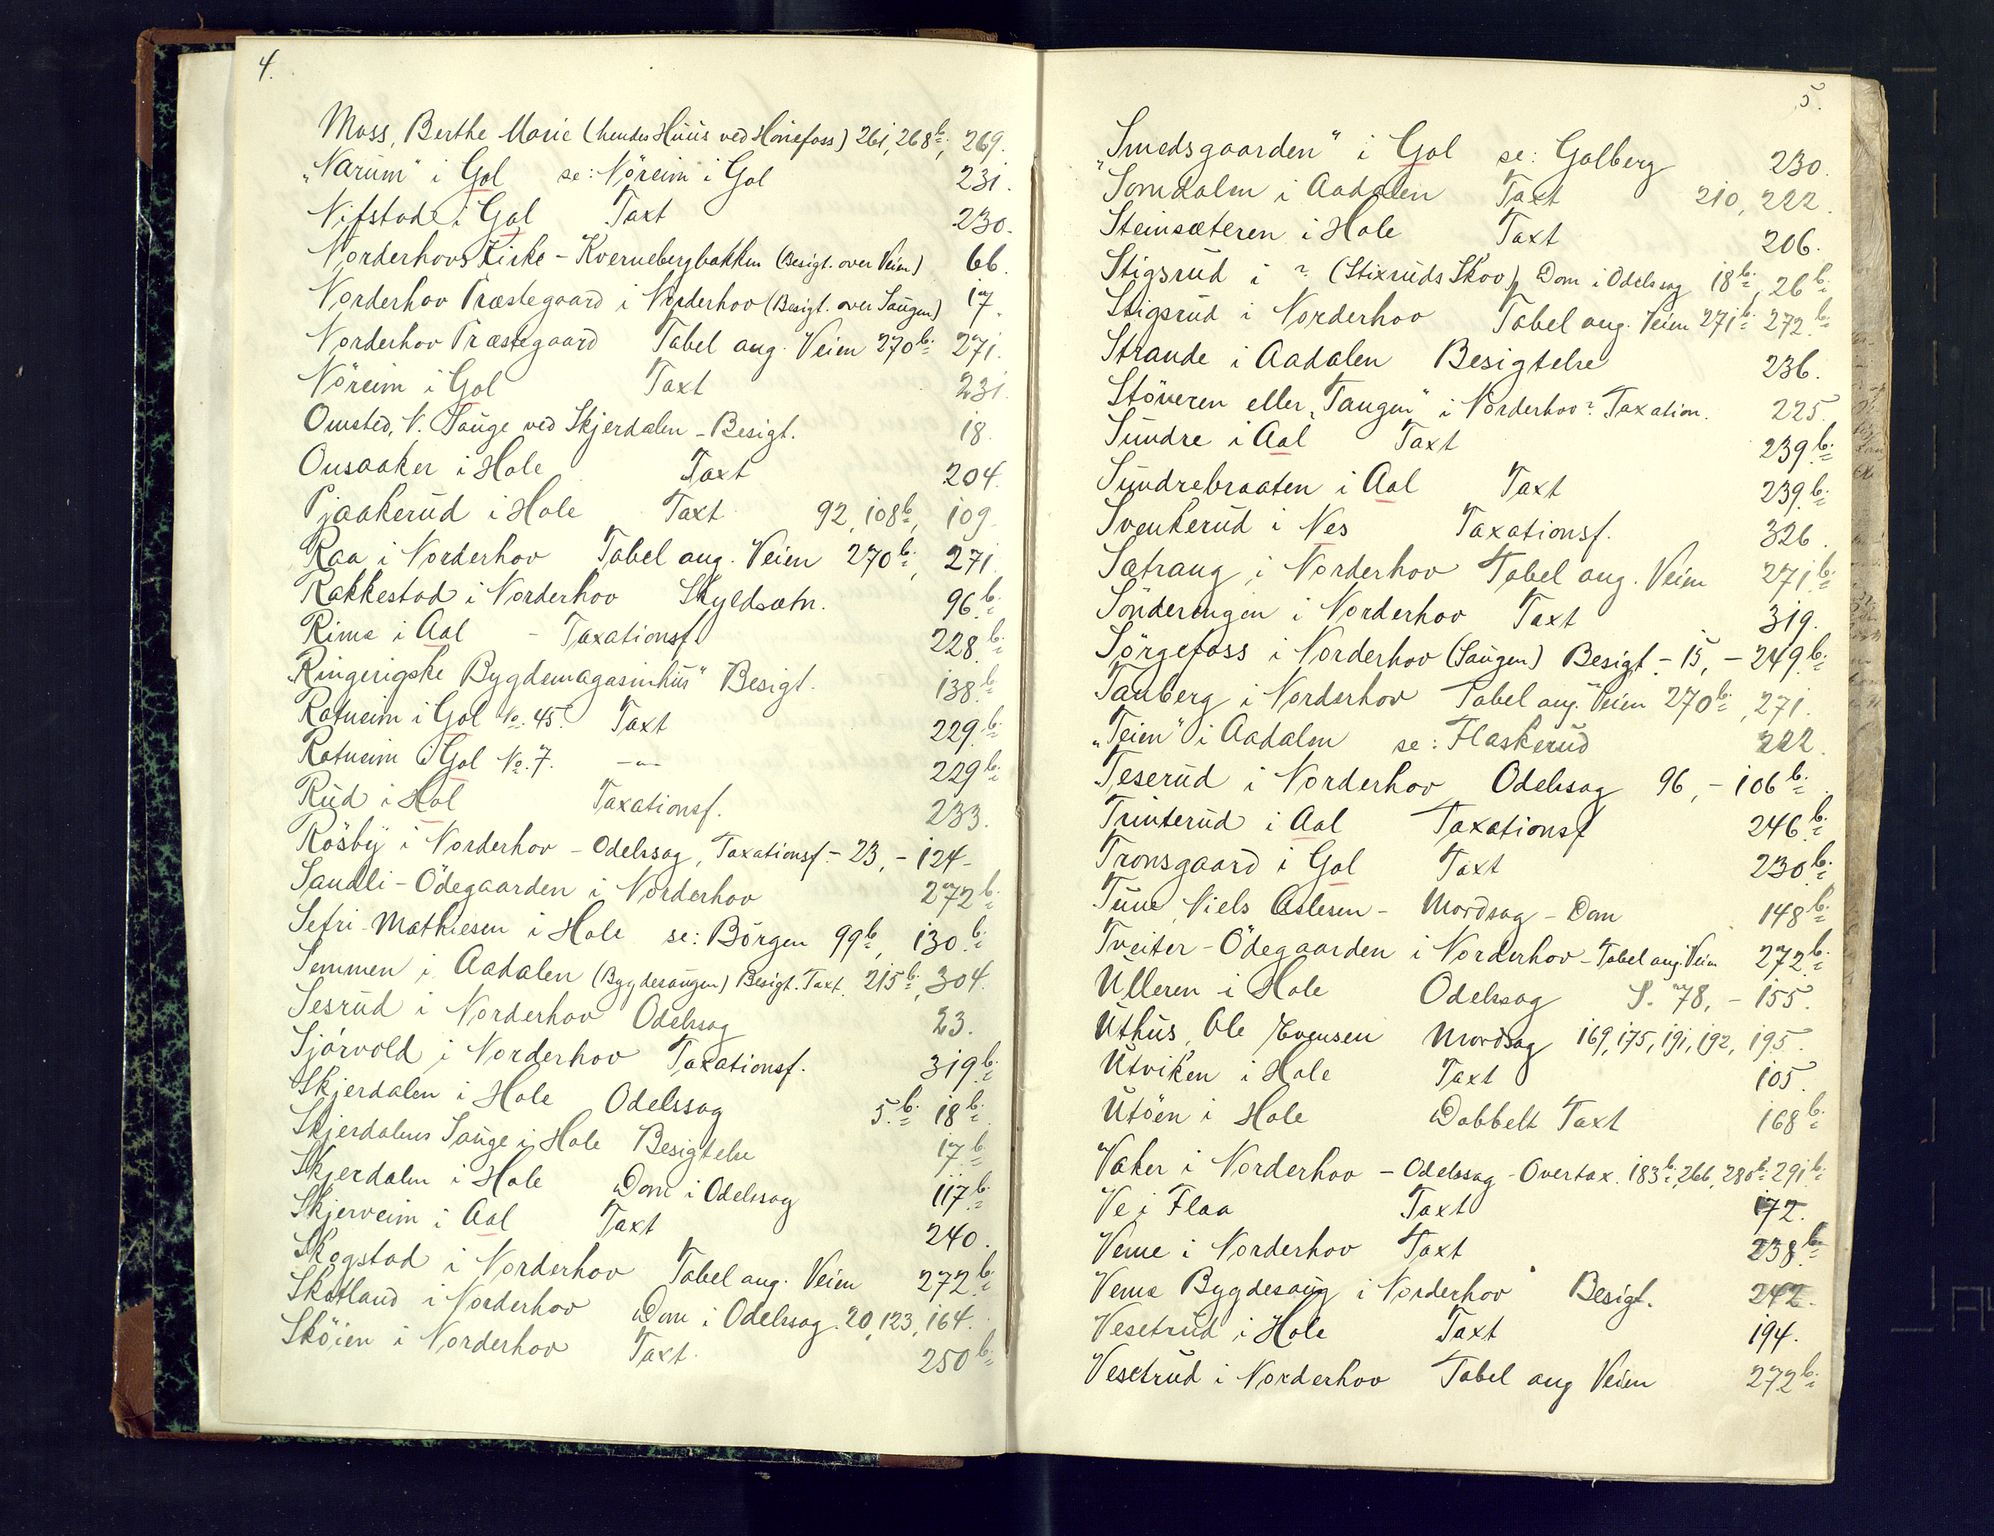 4.
Moss, Berthe Marie (hendes Huus ved Hönefoss) 261, 268 b., 269.
„Narum" i Gol se: Nöreim i Gol 231.
Nifstad i Gol Taxt 230.
Norderhovs Kirke - Kvernebergbakken (Besigt. over Veien) 66.
Norderhov Præstegaard i Norderhov (Besigt. over Saugen) 17.
Norderhov Præstegaard Tabel ang. Veien 270 b. 271.
Nöreim i Gol Taxt 231.
Omsted, N. Sauge ved Skjerdalen - Besigt. 18.
Onsaaker i Hole Taxt 204.
Pjaakerud i Hole Taxt 92, 108 b, 109.
Raa i Norderhov Tabel ang. Veien 270 b., 271.
Rakkestad i Norderhov Skyldsætn. 96 b.
Rime i Aal - Taxationsf. 228 b.
„Ringerigske Bygdemagasinhus" Besigt. 138 b.
Rotneim i Gol No. 45. Taxt 229 b.
Rotneim i Gol No. 7. -"- 229 b.
Rud i Hol Taxationsf. 233.
Rösby i Norderhov - Odelssag, Taxationsf. - 23, - 124 -
Sandli - Ödegaarden i Norderhov 272 b.
Sefri Mathiesen i Hole se: Börgen 99 b, 130 b.
Semmen i Aadalen (Bygdesaugen) Besigt. Taxt. 215 b, 304.
Sesrud i Norderhov Odelssag 23.
Sjørvold i Norderhov Taxationsf. 319 b.
Skjerdalen i Hole Odelssag 5. b. 18 b.
Skjerdalens Sauge i Hole Besigtelse 17 b
Skjerdalen i Hole Dom i Odelssag 117 b.
Skjerveim i Aal Taxt 240.
Skogstad i Norderhov Tabel ang. Veien 272 b.
Skotland i Norderhov Dom i Odelssag. 20, 123, 164.
Sköien i Norderhov Taxt. 250 b.
5.
„Smedsgaarden" i Gol se: Golberg 230.
Somdalen i Aadalen Taxt 210, 222.
Steinsæteren i Hole Taxt 206.
Stigsrud i ? (Stixruds Skov), Dom i Odelssag 18 b., 26 b.
Stigsrud i Norderhov Tabel ang. Veien 271 b. 272. b.
Strande i Aadalen Besigtelse 236.
Stöveren eller „Tangen" i Norderhov? Taxation. 225.
Sundre i Aal Taxt 239. b.
Sundrebraaten i Aal Taxt 239. b.
Svenkerud i Nes Taxationsf. 326.
Sætrang i Norderhov Tabel ang. Veien 271 b.
Sönderengen i Norderhov Taxt 319.
Sörgefoss i Norderhov (Saugen) Besigt. - 15, - 249 b.
Tanberg i Norderhov Tabel ang. Veien 270 b., 271.
„Teien" i Aadalen se: Flaskerud 222.
Teserud i Norderhov Odelssag 96, - 106 b.
Trinterud i Aal Taxationsf 246. b.
Tronsgaard i Gol Taxt 230. b.
Tuue Niels Oslesen - Mordsag - Dom 148 b.
Tveiter - Ödegaarden i Norderhov - Tabel ang. Veien 272. b.
Ulleren i Hole Odelssag S. 78, - 155.
Uthus, Ole Evensen Mordsag 169, 175, 191, 192, 195.
Utviken i Hole Taxt 105.
Utöen i Hole Dobbelt Taxt 168 b.
Vaker i Norderhov - Odelssag - Overtax. 183 b., 266, 280 b. 291 b.
Ve i Flaa Taxt 172.
Veme i Norderhov Taxt 238. b.
Veme Bygdesaug i Norderhov Besigt. 242.
Vesetrud i Hole Taxt 194.
Vesetrud i Norderhov Tabel ang Veien 272 b.